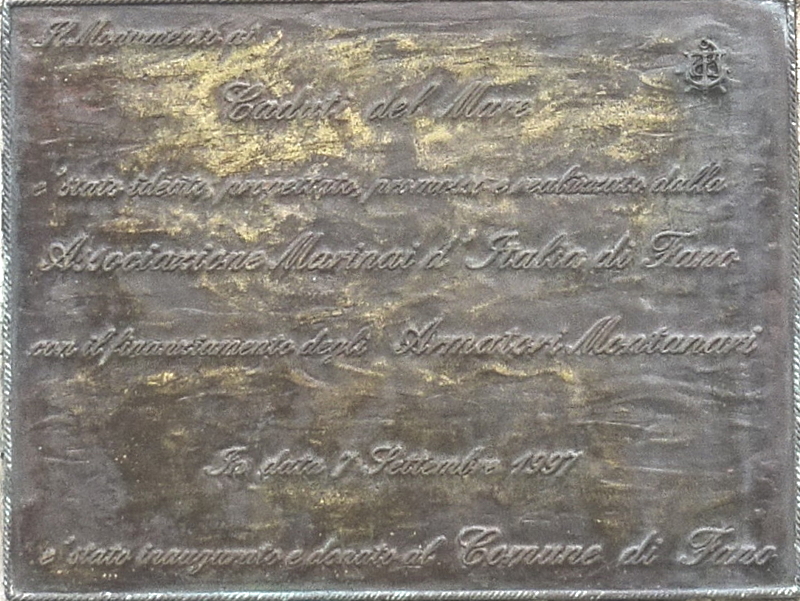 Il Monumento ai
Caduti del Mare
e' stato ideato, progettato, promosso e realizzato dalla
Associazione Marinai d'Italia di Fano
con il finanziamento degli Armatori Montanari
In data 7 Settembre 1997
e' stato inaugurato e donato al Comune di Fano